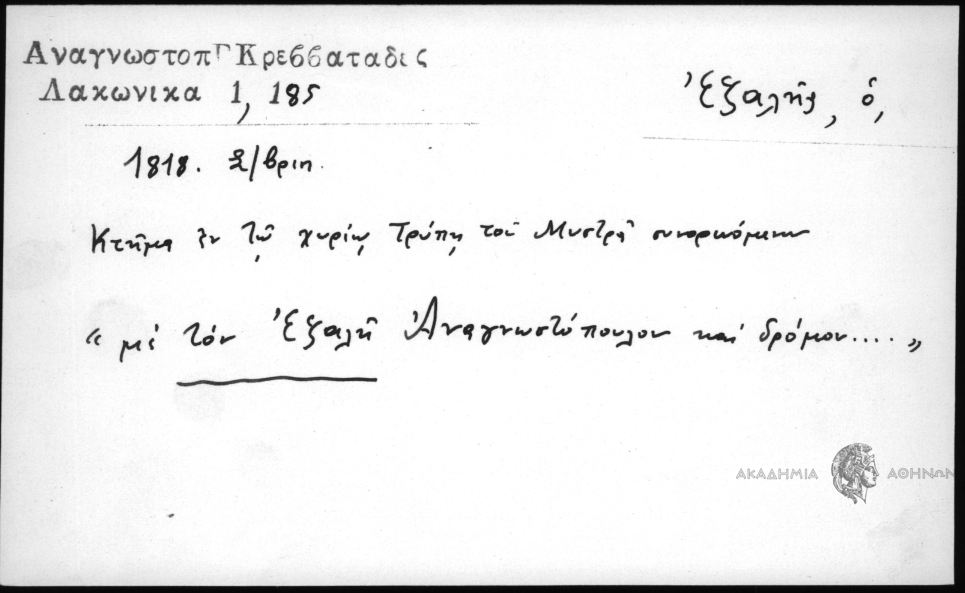 Αναγνωστοπ Γ Κρεββαταδες
Λακωνικα 1, 185
Ἐξαλῆς, ὁ,
1818. /βρίη.
Κτῆμα ἐν τῷ χωρίῳ Τρύπῃ τοῦ Μυστρᾶ συνορευόμενον
« μὲ τὸν Ἐξαλῆ Ἀναγνωστόπουλον καὶ δρόμον.... »
ΑΚΑΔΗΜΙΑ ΑΘΗΝΩΝ